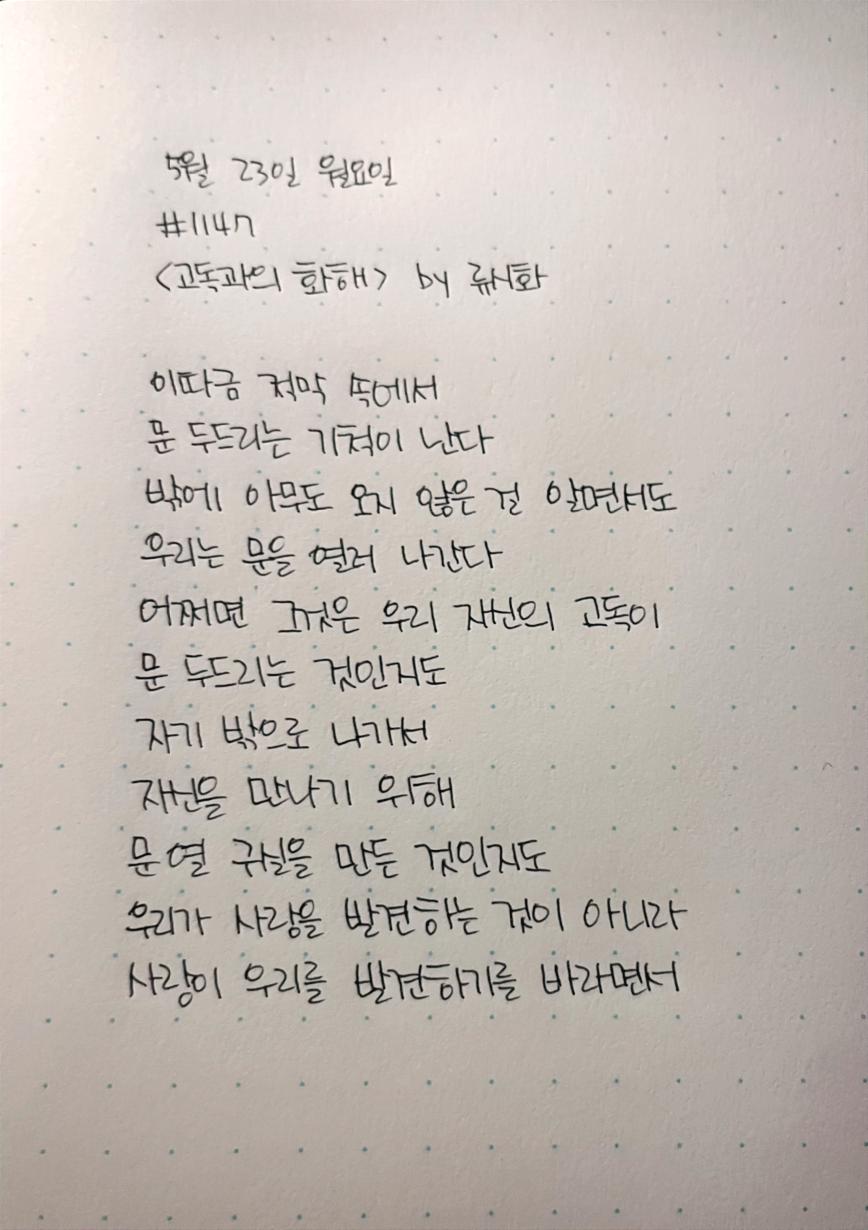 5월 23일 월요일
#1147
<고독과의 화해> by 류시화
이따금 적막 속에서
문 두드리는 기척이 난다
밖에 아무도 오지 않은 걸 알면서도
우리는 문을 열러 나간다
어쩌면 그것은 우리 자신의 고독이
문 두드리는 것인지도
자기 밖으로 나가서
자신을 만나기 위해
문 열 구실을 만든 것인지도
우리가 사랑을 발견하는 것이 아니라
사랑이 우리를 발견하기를 바라면서